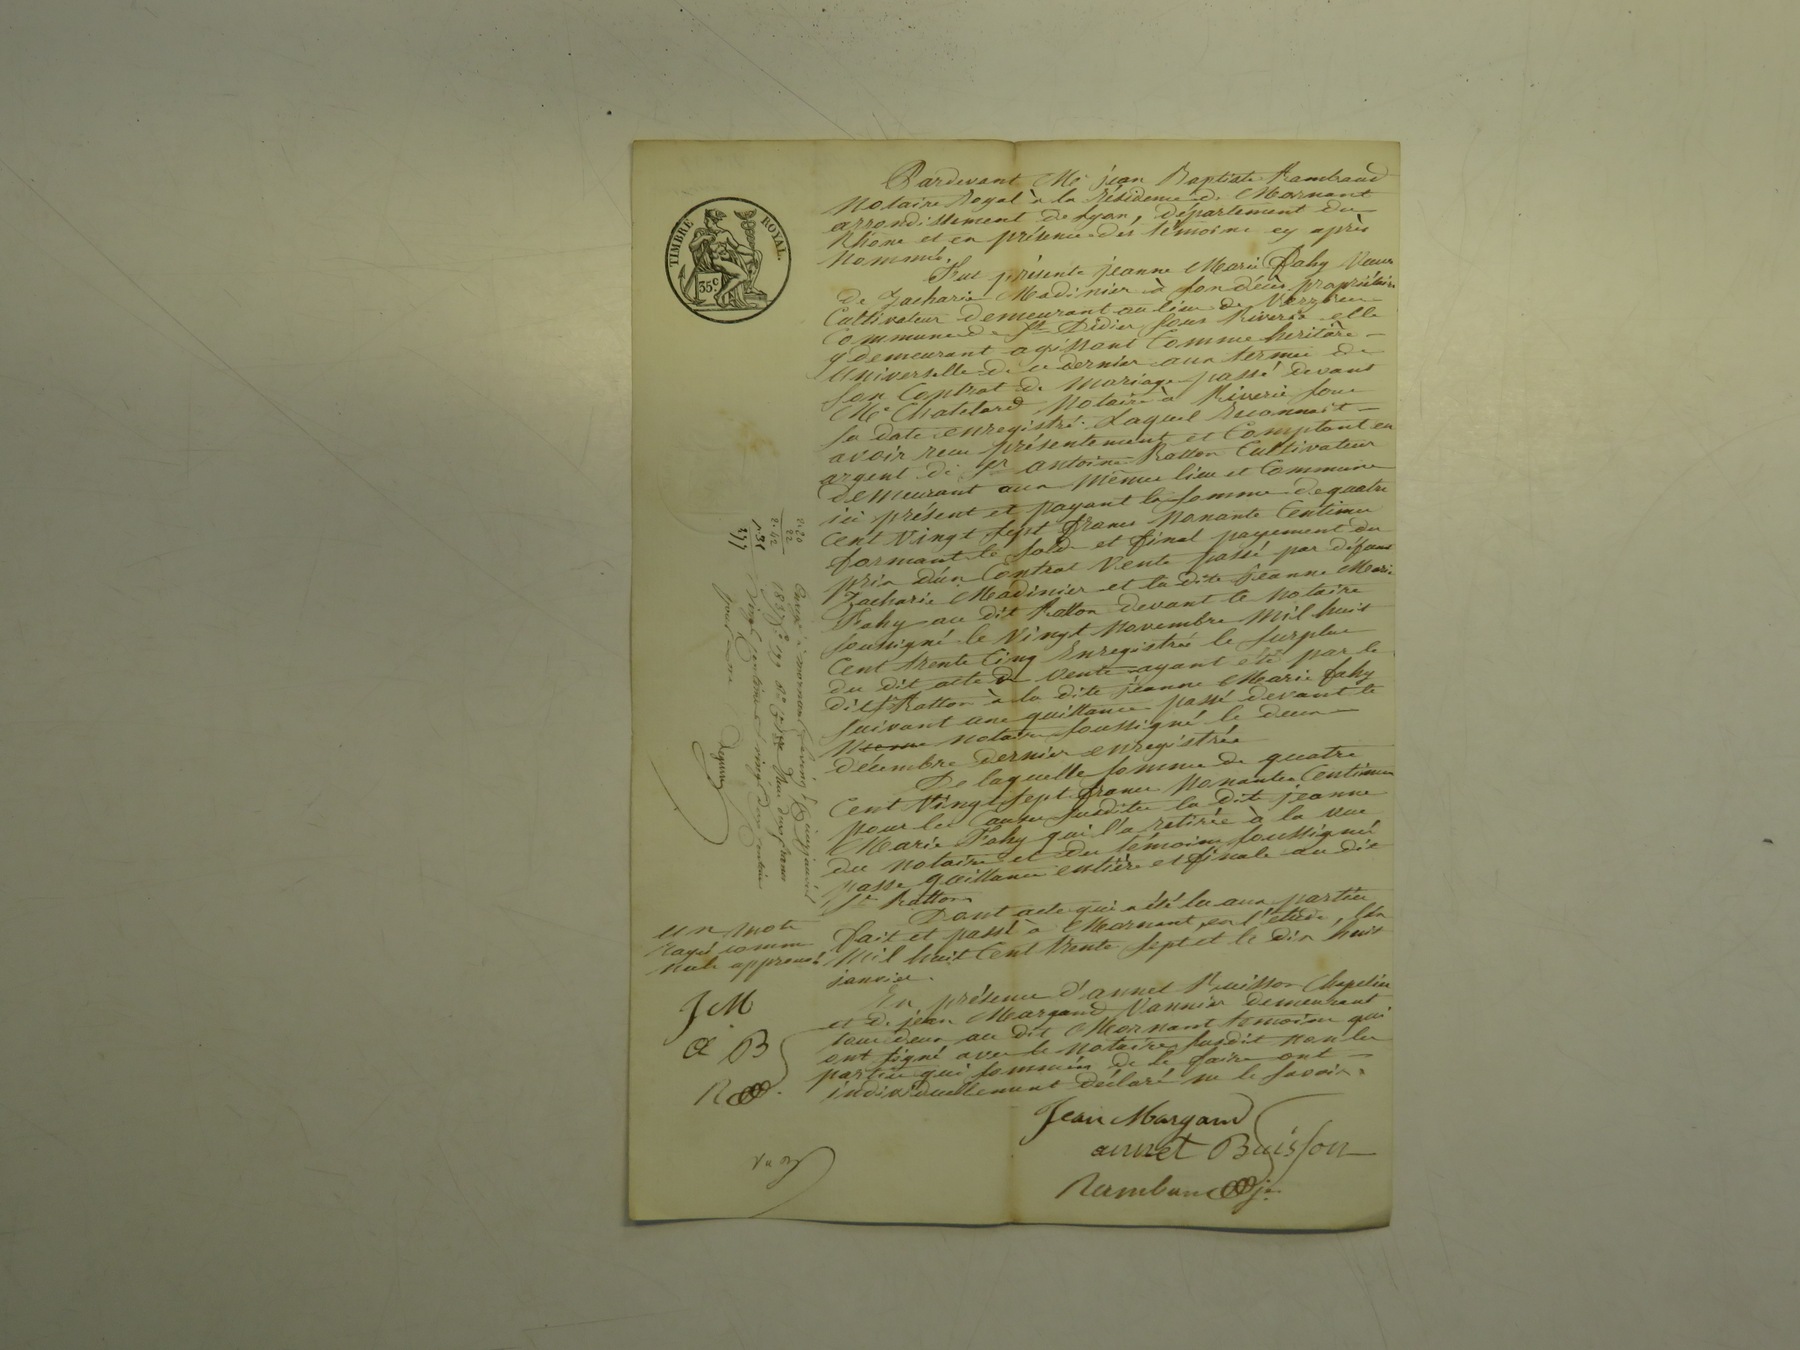 TIMBRE ROYAL.
35c.
Pardevant Me jean Baptiste Rambaud
Notaire Royal à la résidence de Mornant
arrondissement de Lyon, département du
Rhône et en présence des témoins cy après
nommés.
Fut présente jeanne Marie Fahy Veuve
de Zacharie Madinier à son décès propriétaire
Cultivateur demeurant au lieu de
Commune de St Didier sous Riverie elle
y demeurant agissant Comme héritère
Universelle de ce dernier aux termes de
son Contrat de mariage passé devant
Me Chatelard Notaire à Riverie sous
sa date enregistré. Laquel reconnait
avoir reçu présentement et Comptant en
argent de Sr antoine Ratton Cultivateur
demeurant aux mêmes lieu et Commune
ici présent et payant la somme de quatre
Cent Vingt sept francs Nonante Centimes
formant le solde et final payement du
prix d'un Contrat Vente passé par défunt
Zacharie Madinier et la dite jeanne Marie
Fahy au dit Ratton devant le notaire
soussigné le Vingt Novembre mil huit
Cent trente Cinq Enregistré le surplus
du dit acte de Vente ayant été par le
dit Sr Ratton à la dite jeanne Marie fahy
suivant une quittance passé devant le
notaire soussigné le deux
décembre dernier enregistrée
De laquelle somme de quatre
Cent Vingt sept francs Nonante Centimes
pour les causes susdites la dite jeanne
Marie Fahy qui l'a retirée à la vue
du notaire et des témoins soussignés
passe quittance entière et finale au dit
Sr Ratton
Dont acte qui a été lu aux parties
fait et passé à Mornant en l'étude, l'an
Mil huit Cent trente sept et le dix huit
janvier.
En présence d'annet Buisson Chapelier
et de jean Margand Vannier demeurant
tous deux au dit Mornant témoins qui
ont signé avec le notaire susdit non les
parties qui sommées de le faire ont
individuellement déclaré ne le savoir.
Jean Margand
annet Buisson
Rambaud jne
un mot
rayé comme
nul approuvé
J M
a B
R
2.20
22
2.42
1837